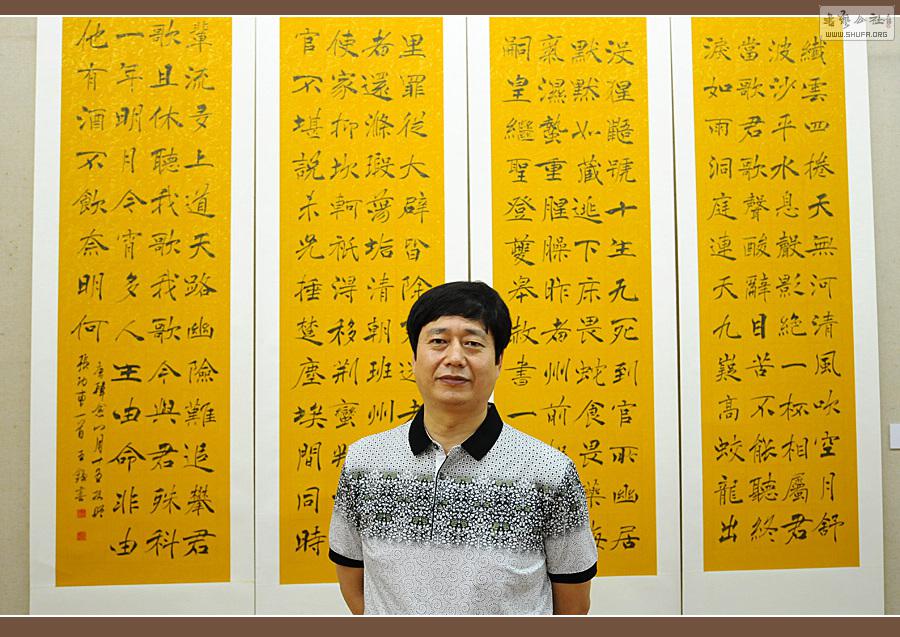 書藝公社
WWW.SHUFA.ORG
纖雲四捲天無河清風吹空月舒
波沙平水息聲影絶一杯相屬君
當歌君歌聲酸辭且苦不能聽終
淚如雨洞庭連天九嶷高蛟龍出
没猩鼯號十生九死到官所幽居
默默如藏逃下床畏蛇食畏藥海
氣濕蟄熏腥臊昨者州前
嗣皇繼聖登夔皋赦書一
里罪從大辟皆除
者還滌瑕蕩垢清朝班州
使家抑坎軻祇得移荆蠻判
官不堪說未免捶楚塵埃間同時
輩流多上道天路幽險難追攀君
歌且休聽我歌我歌今與君殊科
一年明月今宵多人生由命非由
他有酒不飲奈明何
唐韓愈八月十五夜贈
張功曹一首